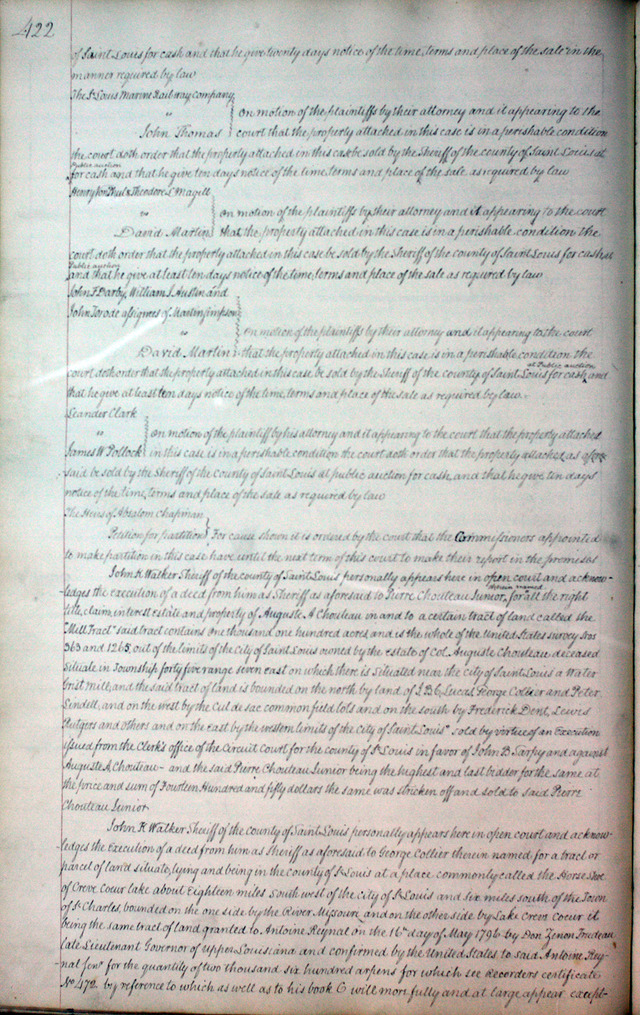 422
of Saint Louis for cash and that he give twenty days notice of the time, terms and place of the sale in the
manner required by law
The St Louis Marine Railway company
" On motion of the plaintiffs by their attorney and it appearing to the
John Thomas court that the property attached in this case is in a perishable condition
the court doth order that the property attached in this case be sold by the Sheriff of the county of Saint Louis at
Public auction
for cash and that he give ten days notice of the time, terms and place of the sale as required by law
Henry Von Phul & Theodore L Magill
" On motion of the plaintiffs by their attorney and it appearing to the court
David Martin that the property attached in this case is in a perishable condition the
court doth order that the property attached in this case be sold by the Sheriff of the county of Saint Louis for cash at
Public auction
and that he give at least ten days notice of the time, terms and place of the sale as required by law
John F Darby, William S. Austin and
John Torode assignees of Martin Simpson
" On motion of the plaintiffs by their attorney and it appearing to the court
David Martin that the property attached in this case is in a perishable condition the
at Public auction
court doth order that the property attached in this case be sold by the Sheriff of the county of Saint Louis for cash and
that he give at least ten days notice of the time, terms and place of the sale as required by law.
Leander Clark
" On motion of the plaintiff by his attorney and it appearing to the court that the property attached
James W Pollock in this case is in a perishable condition the court doth order that the property attached as afore
said be sold by the Sheriff of the County of Saint Louis at public auction for cash, and that he give ten days
notice of the time, terms and place of the sale as required by law
The Heirs of Absalom Chapman
Petition for partition For cause shown it is ordered by the court that the Commissioners appointed
to make partition in this case have until the next term of this court to make their report in the premises
John K Walker Sheriff of the county of Saint Louis personally appears here in open court and acknow-
therein named
ledges the execution of a deed from him as Sheriff as aforesaid to Pierre Chouteau Junior, for all the right
title, claim, interest estate and property of Auguste A Chouteau in and to a certain tract of land called the
"Mill Tract" said tract contains One thousand one hundred acres and is the whole of the United States survey Nos
363 and 1268 out of the limits of the City of Saint Louis owned by the estate of Col. Auguste Chouteau deceased
Situate in Township forty five range seven east on which there is situated near the city of Saint Louis a Water
Grist mill, and the said tract of land is bounded on the north by land of J. B. C. Lucas, George Collier and Peter
Lindell, and on the west by the Cul de sac common field lots and on the south by Frederick Dent, Lewis
Rutgers and others and on the East by the western limits of the city of Saint Louis" sold by virtue of an Execution
issued from the Clerk's office of the Circuit court for the county of St Louis in favor of John B Sarpy and against
Auguste A Chouteau - and the said Pierre Chouteau Junior being the highest and last bidder for the same at
the price and sum of Fourteen Hundred and fifty dollars the same was stricken off and sold to said Pierre
Chouteau Junior
John K Walker Sheriff of the county of Saint Louis personally appears here in open court and acknow-
ledges the Execution of a deed from him as Sheriff as aforesaid to George Collier therein named, for a tract or
parcel of land situate, lying and being in the county of St Louis at a place commonly called the Horse Shoe
of Creve Coeur lake about Eighteen miles South west of the city of St Louis and six miles south of the Town
of St Charles, bounded on the one side by the River Missouri, and on the other side by Lake Creve coeur it
being the same tract of land granted to Antoine Reynal on the 16th day of May 1796 by Don Zenon Trudeau
late Lieutenant Governor of upper Louisiana and confirmed by the United States to said Antoine Rey-
nal Senr for the quantity of two thousand six hundred arpens for which see Recorders certificate
No 472 by reference to which as well as to his book C will more fully and at large appear except-